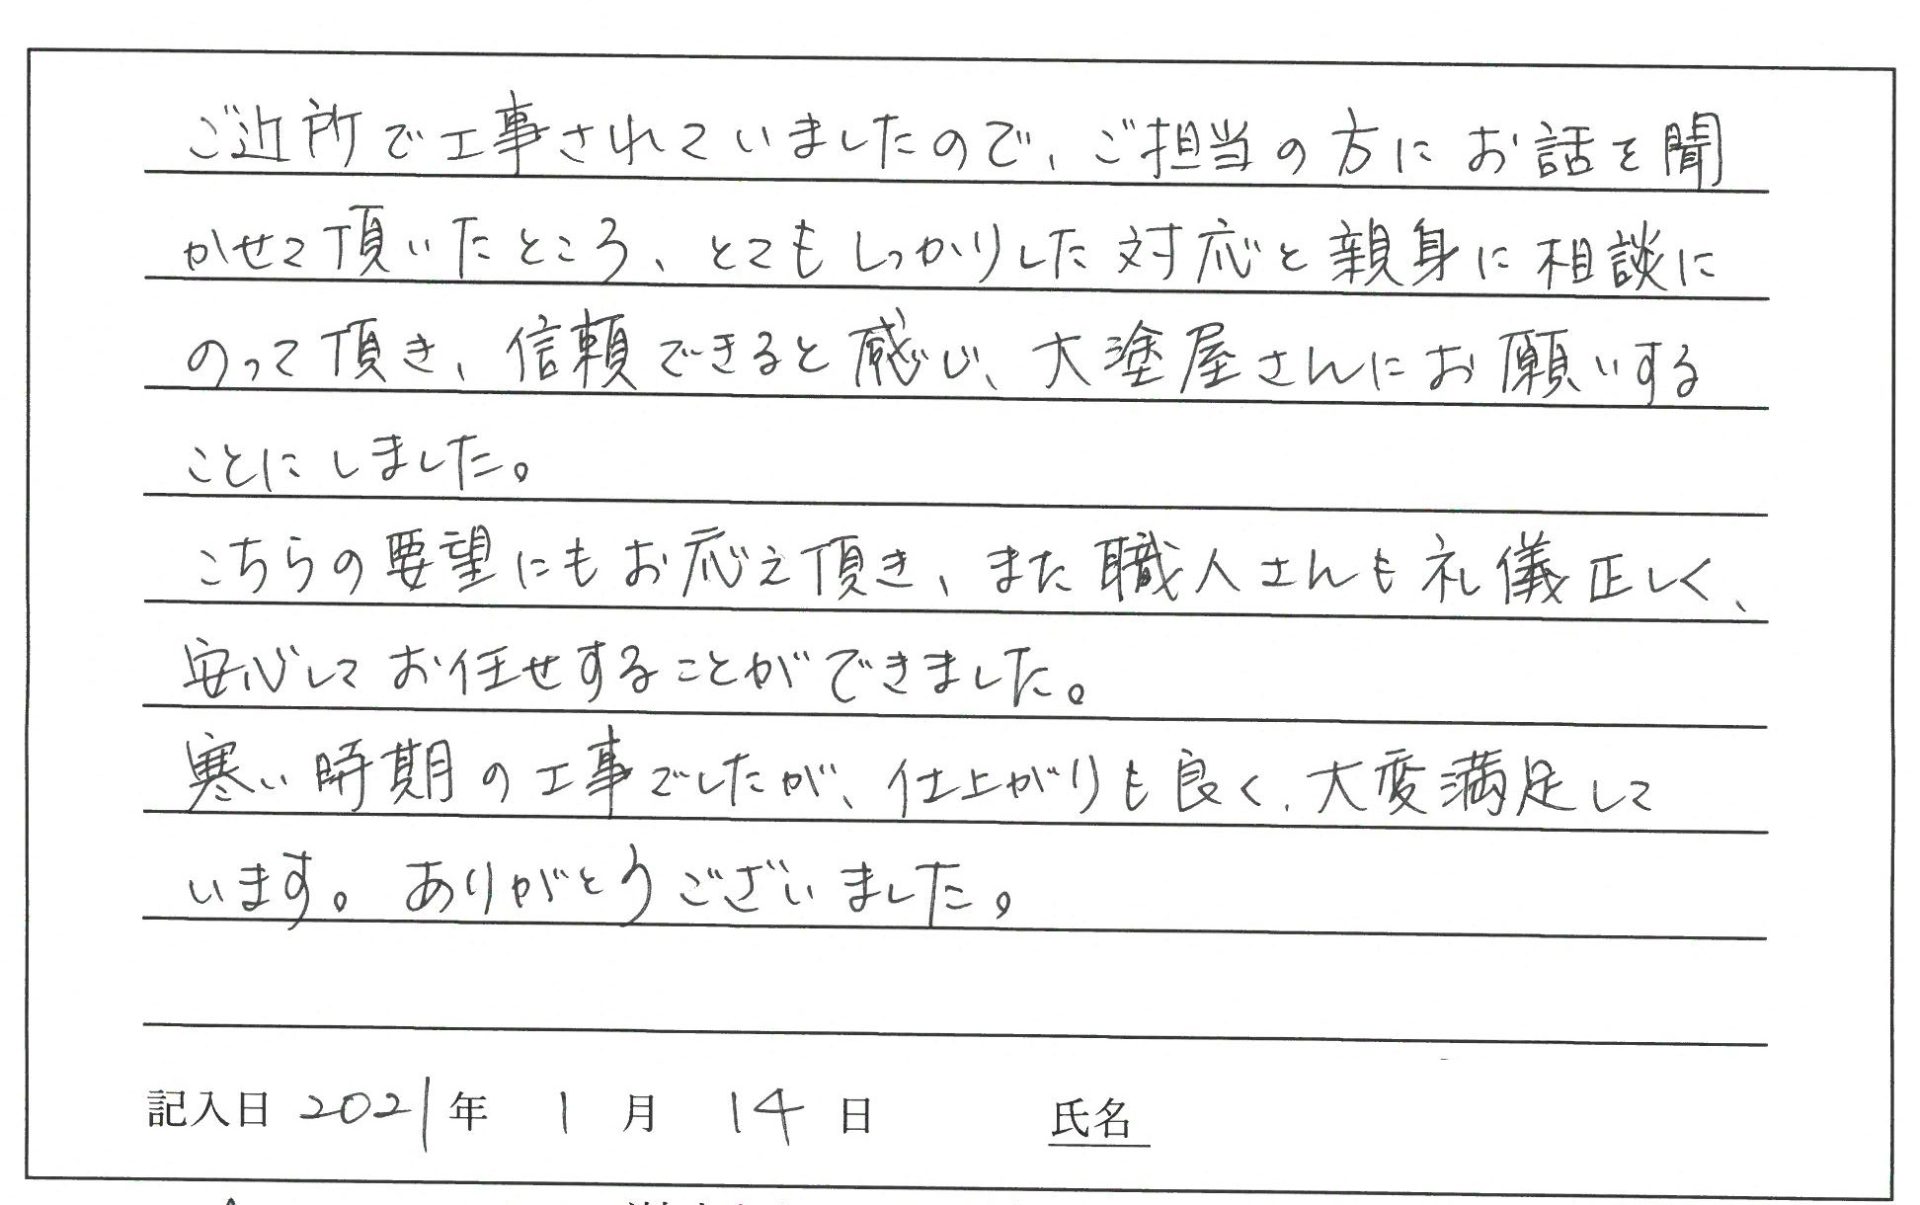 ご近所で工事されていましたので、ご担当の方にお話を聞
かせて頂いたところ、とてもしっかりした対応と親身に相談に
のって頂き、信頼できると感じ、大塗屋さんにお願いする
ことにしました。
こちらの要望にもお応え頂き、また職人さんも礼儀正しく、
安心してお任せすることができました。
寒い時期の工事でしたが、仕上がりも良く、大変満足して
います。ありがとうございました。
記入日 2021年 1月 14日 氏名